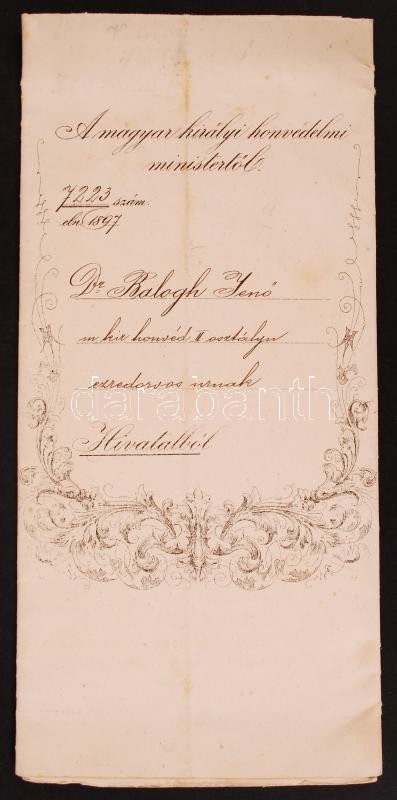 A magyar királyi honvédelmi
ministertől.
7223 szám.
eln 1897
Dr Balogh Jenő
m kir honvéd II osztályu
ezredorvos urnak
darabanth
Hivatalból